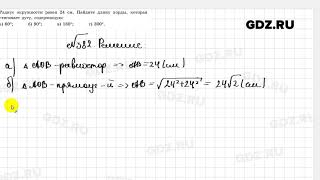 GDZ.RU
Радиус окружности равен 24 см. Найдите длину хорды, которая стягивает дугу, содержащую:
а) 60°; б) 90°; в) 180°; г) 300°.
№582 Решение:
а) △AOB-равностор => AB=24(см)
б) △AOB-прямоуг-й => AB=√24²+24² = 24√2(см)
GDZ.RU